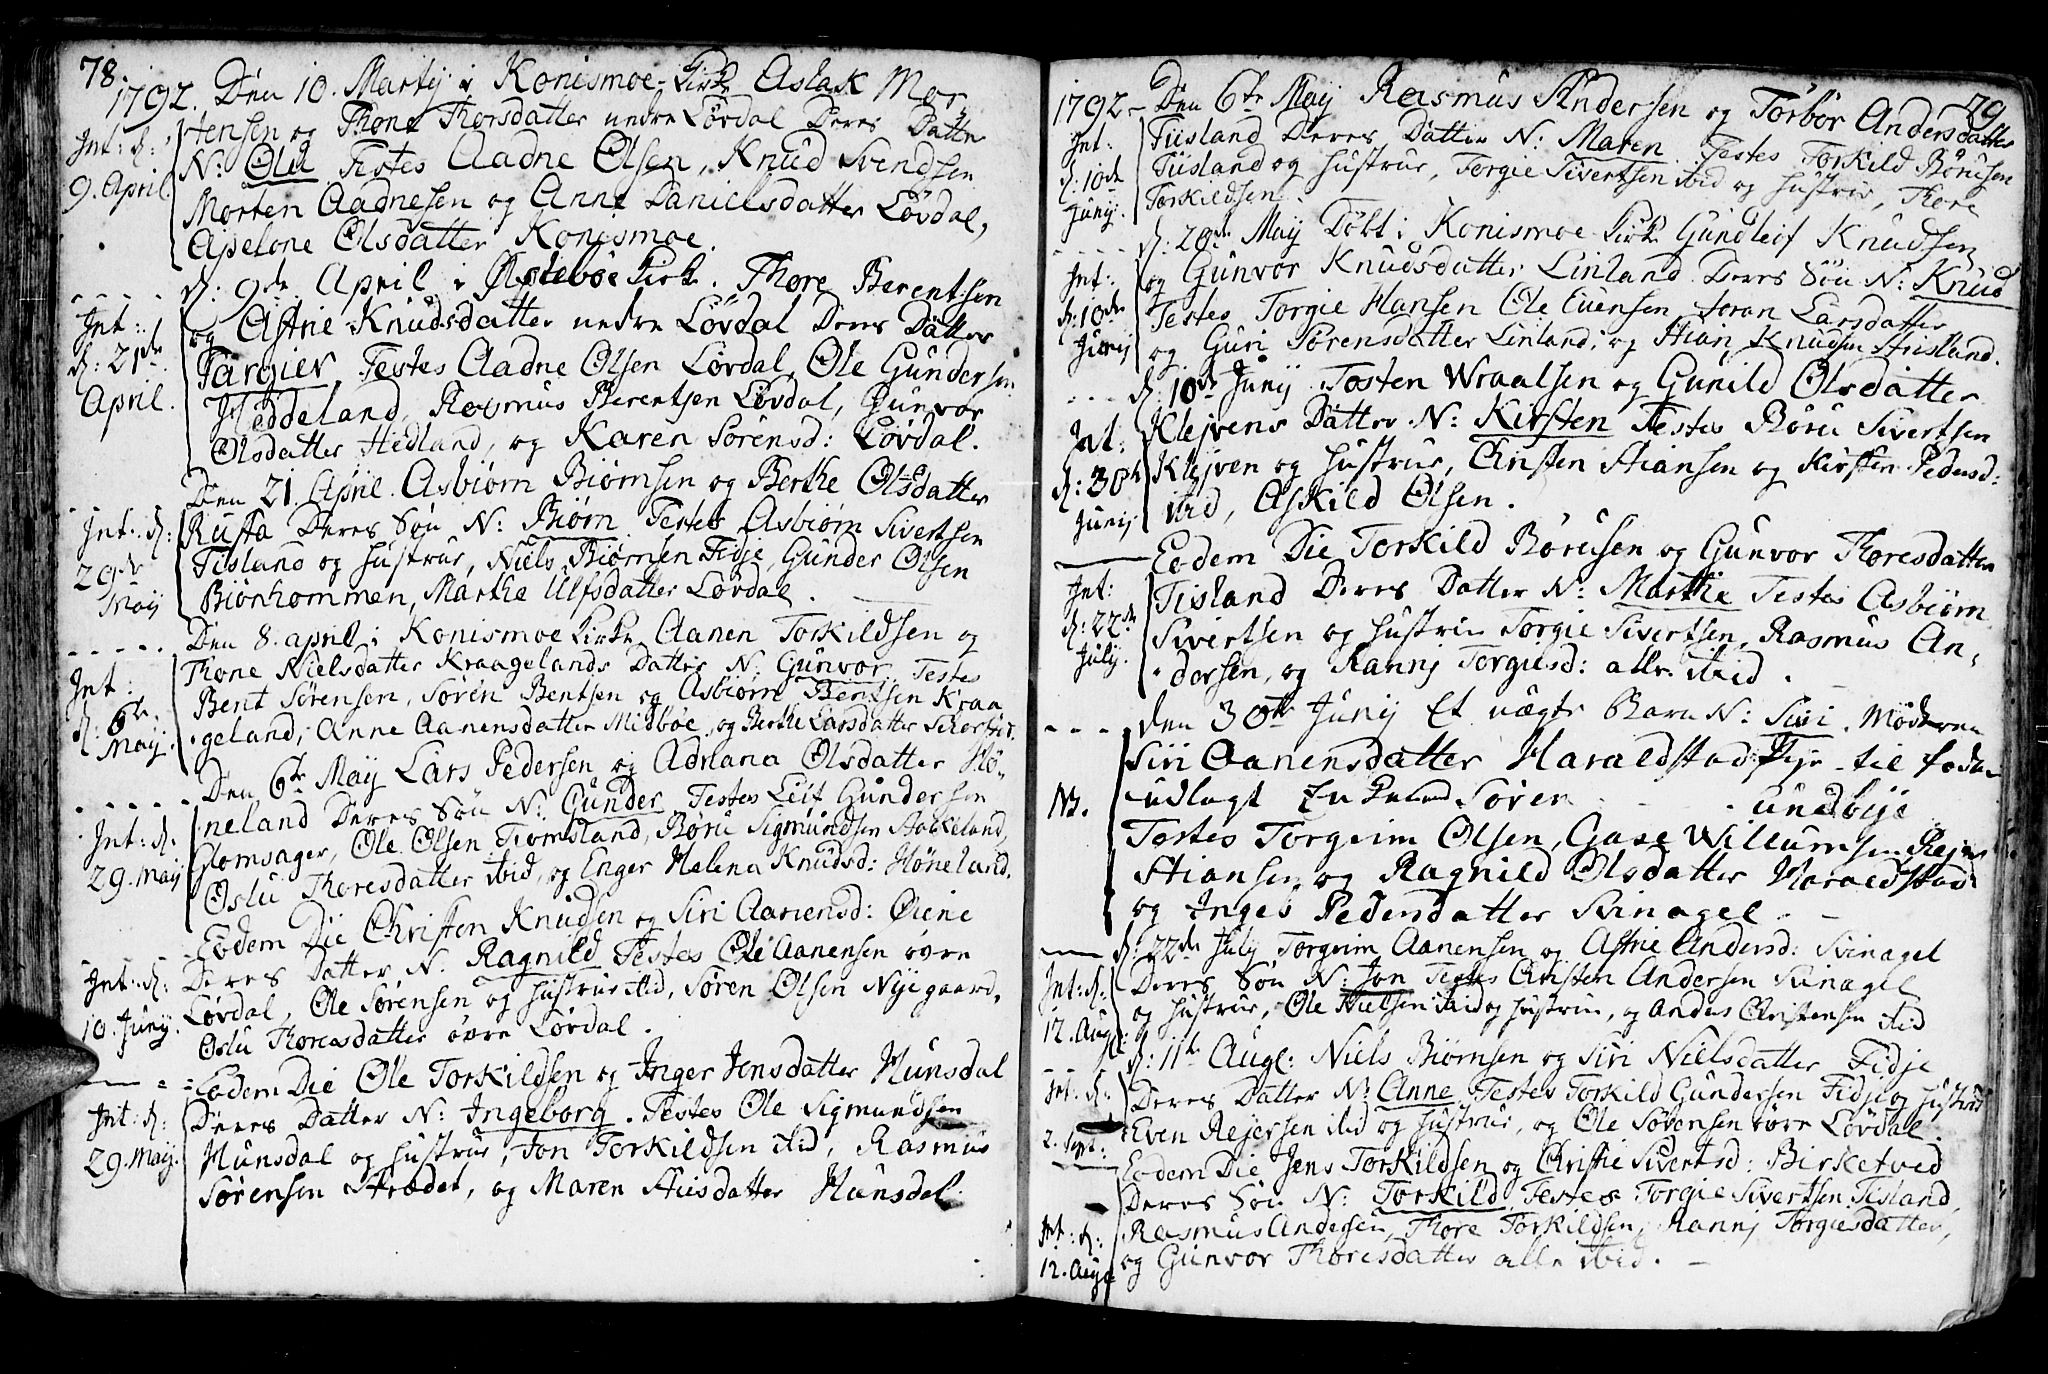 78.
1792. Den 10. Martij i Konismoe Kirke Aslak Mor
Int: d:
9. April
tensen og Thone Thorsdatter nedre Løvdal Deres Datter
N: Olu Testes Aadne Olsen, Knud Svendsen
Morten Aadnesen og Anne Danielsdatter Løvdal,
Apelone Olsdatter Konismoe.
d: 9de April i Øslebøe Kirke. Thore Berentsen
Int:
d: 21de
April.
og Astrie Knudsdatter nedre Løvdal Deres Datter
Targier, Testes Aadne Olsen Løvdal, Ole Gundersen
Heddeland, Rasmus Berentsen Løvdal, Gunvor
Olsdatter Hedland, og Karen Sørensd: Løvdal.
Den 21. April. Asbiørn Biørnsen og Berthe Olsdatter
Int: d:
29de
May
Rusta Deres Søn N: Biørn Testes Asbiørn Sivertsen
Tisland og Hustrue, Niels Biørnsen Fidje, Gunder Olsen
Biönhommen, Marthe Ulfsdatter Løvdal.
Den 8. april i Konismoe Kirke Aanen Torkildsen og
Int:
d: 6te
May.
Thone Nielsdatter Kraagelands Datter N: Gunvor. Testes
Bent Sørensen, Søren Bentsen og Asbiørn Bentsen Kraa
geland, Anne Aanensdatter Midbøe, og Berthe Larsdatter
Den 6te May Lars Pedersen og Adriana Olsdatter Hø-
Int: d:
29. May
neland Deres Søn N: Gunder Testes Leif Gundersen
Glomsager, Ole Olsen Tiomsland, Børu Sigmundsen Stokkeland,
Oslu Thoresdatter ibid, og Enger Helena Knudsd: Høneland.
Eodem Die Christen Knudsen og Siri Aanensd: Øiene
Int: d:
10. Juny.
Deres Datter N: Ragnild Testes Ole Aanensen øvre
Løvdal, Ole Sørensen og Hustrue ibid, Søren Olsen Nyegaard,
Oslu Thoresdatter øvre Løvdal.
Eodem Die Ole Torkildsen og Inger Jensdatter Hunsdal
Int: d:
29. May.
Deres Datter N: Ingeborg. Testes Ole Sigmundsen
Hunsdal og Hustrue, Jon Torkildsen ibid, Rasmus
Sørensen Strædet, og Maren Stiisdatter Hunsdal.
79
1792 - Den 6te May Rasmus Andersen og Torbor Andersdatter
Int:
d: 10de
Juny.
Tiisland Deres Datter N: Maren. Testes Torkild Børusen
Tiisland og Hustrue, Torgie Sivertsen ibid og Hustrue, Thore
Torkildsen.
d: 20de May Döbt i Konismoe Kirke Gundleif Knudsen
Int:
d: 10de
Junij
og Gunvor Knudsdatter Linland Deres Søn N: Knud
Testes Torgie Hansen Ole Evensen, Joran Larsdatter
og Guri Sørensdatter Linland, og Stian Knudsen
d: 10de Juny Tosten Wraalsen og Gunild Olsdatter
Int:
d: 30te
Junij
Klejvens Datter N: Kirsten Testes Børu Sivertsen
Klejven og Hustrue, Christen Stiansen og Kirsten Pedersd:
ibid, Askild Olsen.
Eodem Die Torkild Børusen og Gunvor Thoresdatter
Int:
d: 22de
July.
Tisland Deres Datter N: Marthe Testes Asbiørn
Sivertsen og Hustrue Torgie Sivertsen, Rasmus An-
dersen, og Rannj Torgiesd: alle ibid.
den 30te Junij Et uægte Barn N: Siri. Moderen
NB.
Siri Aanensdatter Haraldstad Pige til fader
udlagt Søren
Testes Torgrim Olsen, Gase Willumsen
Stiansen og Ragnild Olsdatter Haraldstad
og Ingeb Pedersdatter Svinagel.
d: 22de July Torgrim Aanensen og Astrie Andersd: Svinagel
Int: d:
12. Aug:
Deres Søn N: Jon Testes Christen Andersen Svinagel
og Hustrue, Ole Nielsen ibid og Hustrue, og Anders Christensen ibid
d: 11te Augt: Niels Biørnsen og Siri Nielsdatter Fidje
Int: d:
2. Sept:
Deres Datter N: Anne Testes Torkild Gundersen Fidje og Hustrue
Even Rejersen ibid og Hustrue, og Ole Sørensen øvre Løvdal.
Eodem Die Jens Torkildsen og Christie Sivertsd: Birketved
Int: d:
12. Aug
Deres Søn N: Torkild, Testes Torgie Sivertsen Tisland,
Rasmus Andersen, Thore Torkildsen, Rannj Torgiesdatter,
og Gunvor Thoresdatter alle ibid.